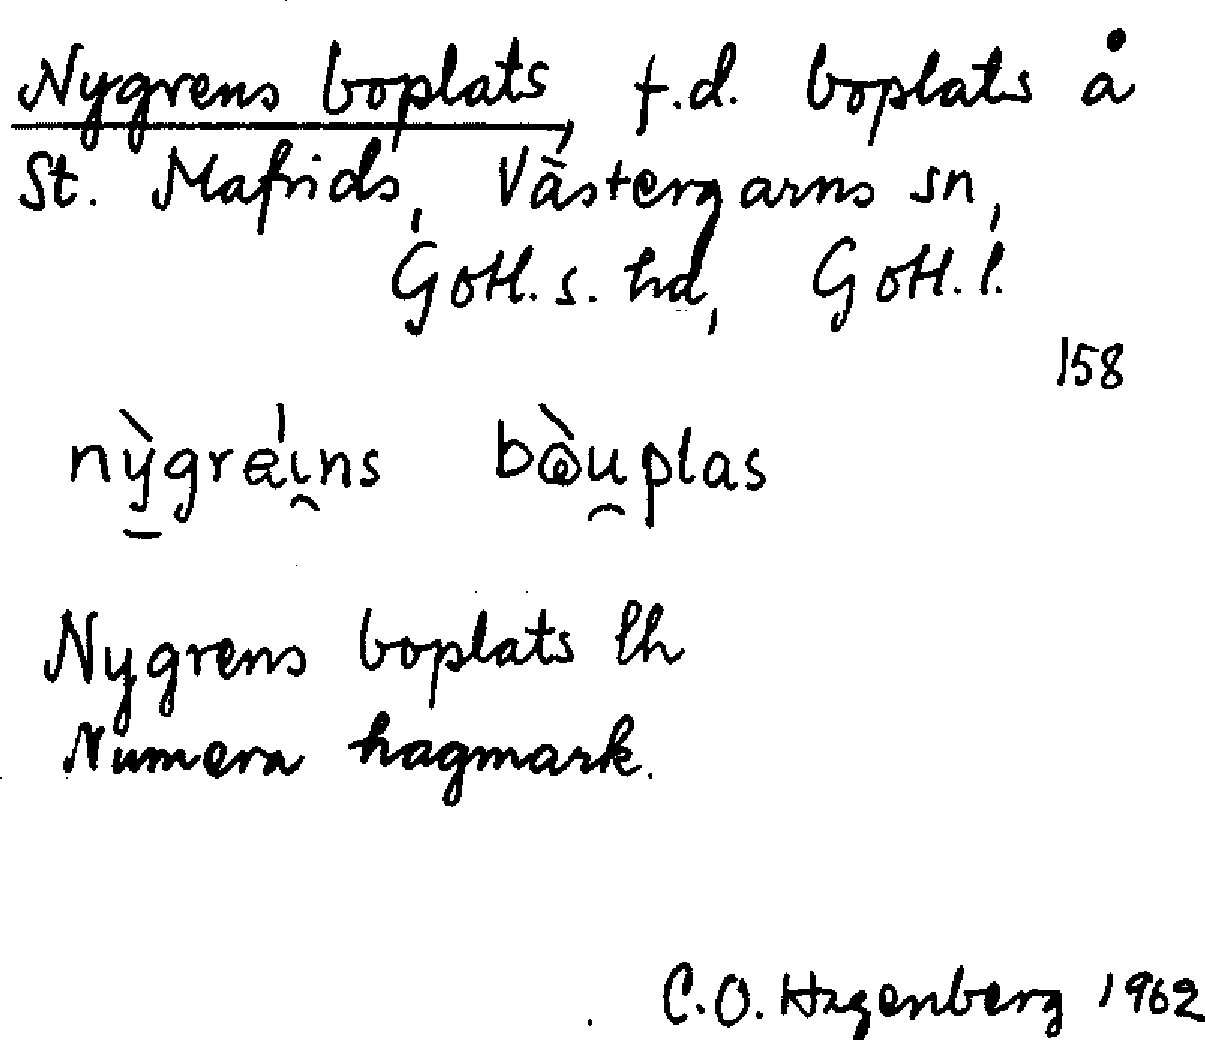 Nygrens boplats, f.d. boplats å
St. Mafrids, Västergarns sn,
Gotl. s. hd, Gotl. l.
158
nỳ̠gráι̯ns bòu̯plas
Nygrens boplats lh
Numera hagmark.
C.O. Hagenberg 1962